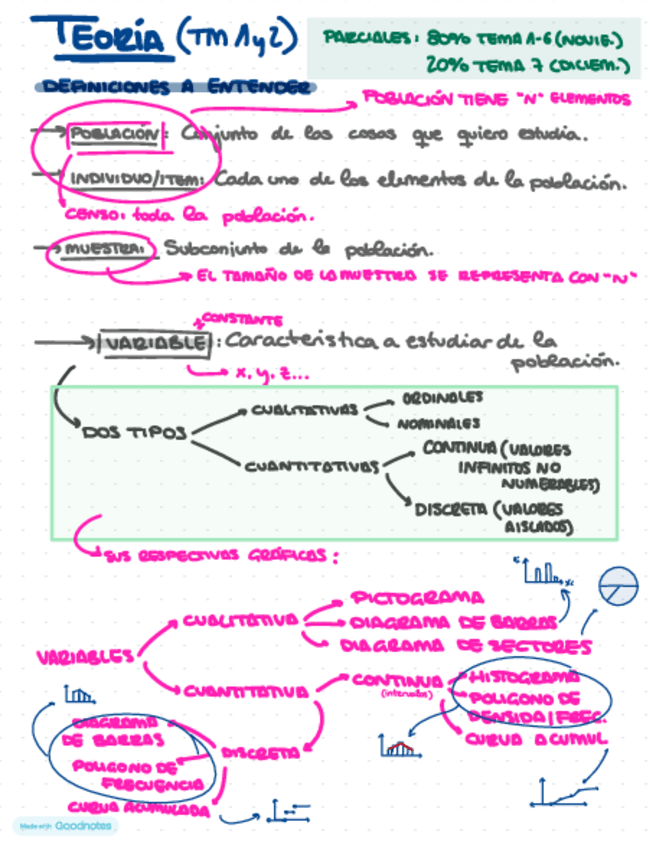 TEORÍA (TM 1 y 2)
PARCIALES: 80% TEMA 1-6 (NOVIE.)
20% TEMA 7 (DICIEM.)
DEFINICIONES A ENTENDER
POBLACIÓN TIENE "N" ELEMENTOS
POBLACIÓN: Conjunto de las cosas que quiero estudia.
INDIVIDUO/ITEM: Cada uno de los elementos de la población.
CENSO: toda la población.
MUESTRA: Subconjunto de la población.
EL TAMAÑO DE LA MUESTRA SE REPRESENTA CON "N"
CONSTANTE
VARIABLE: Característica a estudiar de la
población.
x, y, z...
DOS TIPOS
CUALITATIVAS
ORDINALES
NOMINALES
CUANTITATIVAS
CONTINUA (VALORES
INFINITOS NO
NUMERABLES)
DISCRETA (VALORES
AISLADOS)
SUS RESPECTIVAS GRÁFICAS:
VARIABLES
CUALITATIVA
PICTOGRAMA
DIAGRAMA DE BARRAS
DIAGRAMA DE SECTORES
CUANTITATIVA
CONTINUA
(intervalos)
HISTOGRAMA
POLIGONO DE
DENSIDA/FREC.
CURVA ACUMUL
DISCRETA
DIAGRAMA
DE BARRAS
POLIGONO DE
FRECUENCIA
CURVA ACUMULADA
Made with Goodnotes